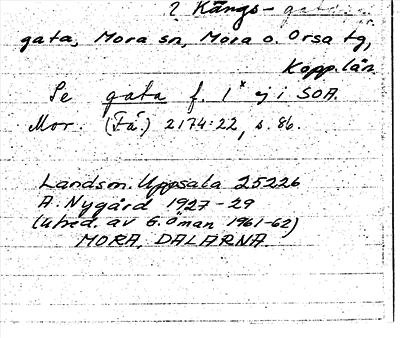 ? Kångs-
gata, Mora sn, Mora o. Orsa tg,
Kopp. län
Se gata f. 1* ej i SOA.
Mor. (Få) 2174:22, s. 86.
Landsm. Uppsala 25226
A. Nygård 1927-29
(utred. av G. Öman 1961-62)
MORA, DALARNA.